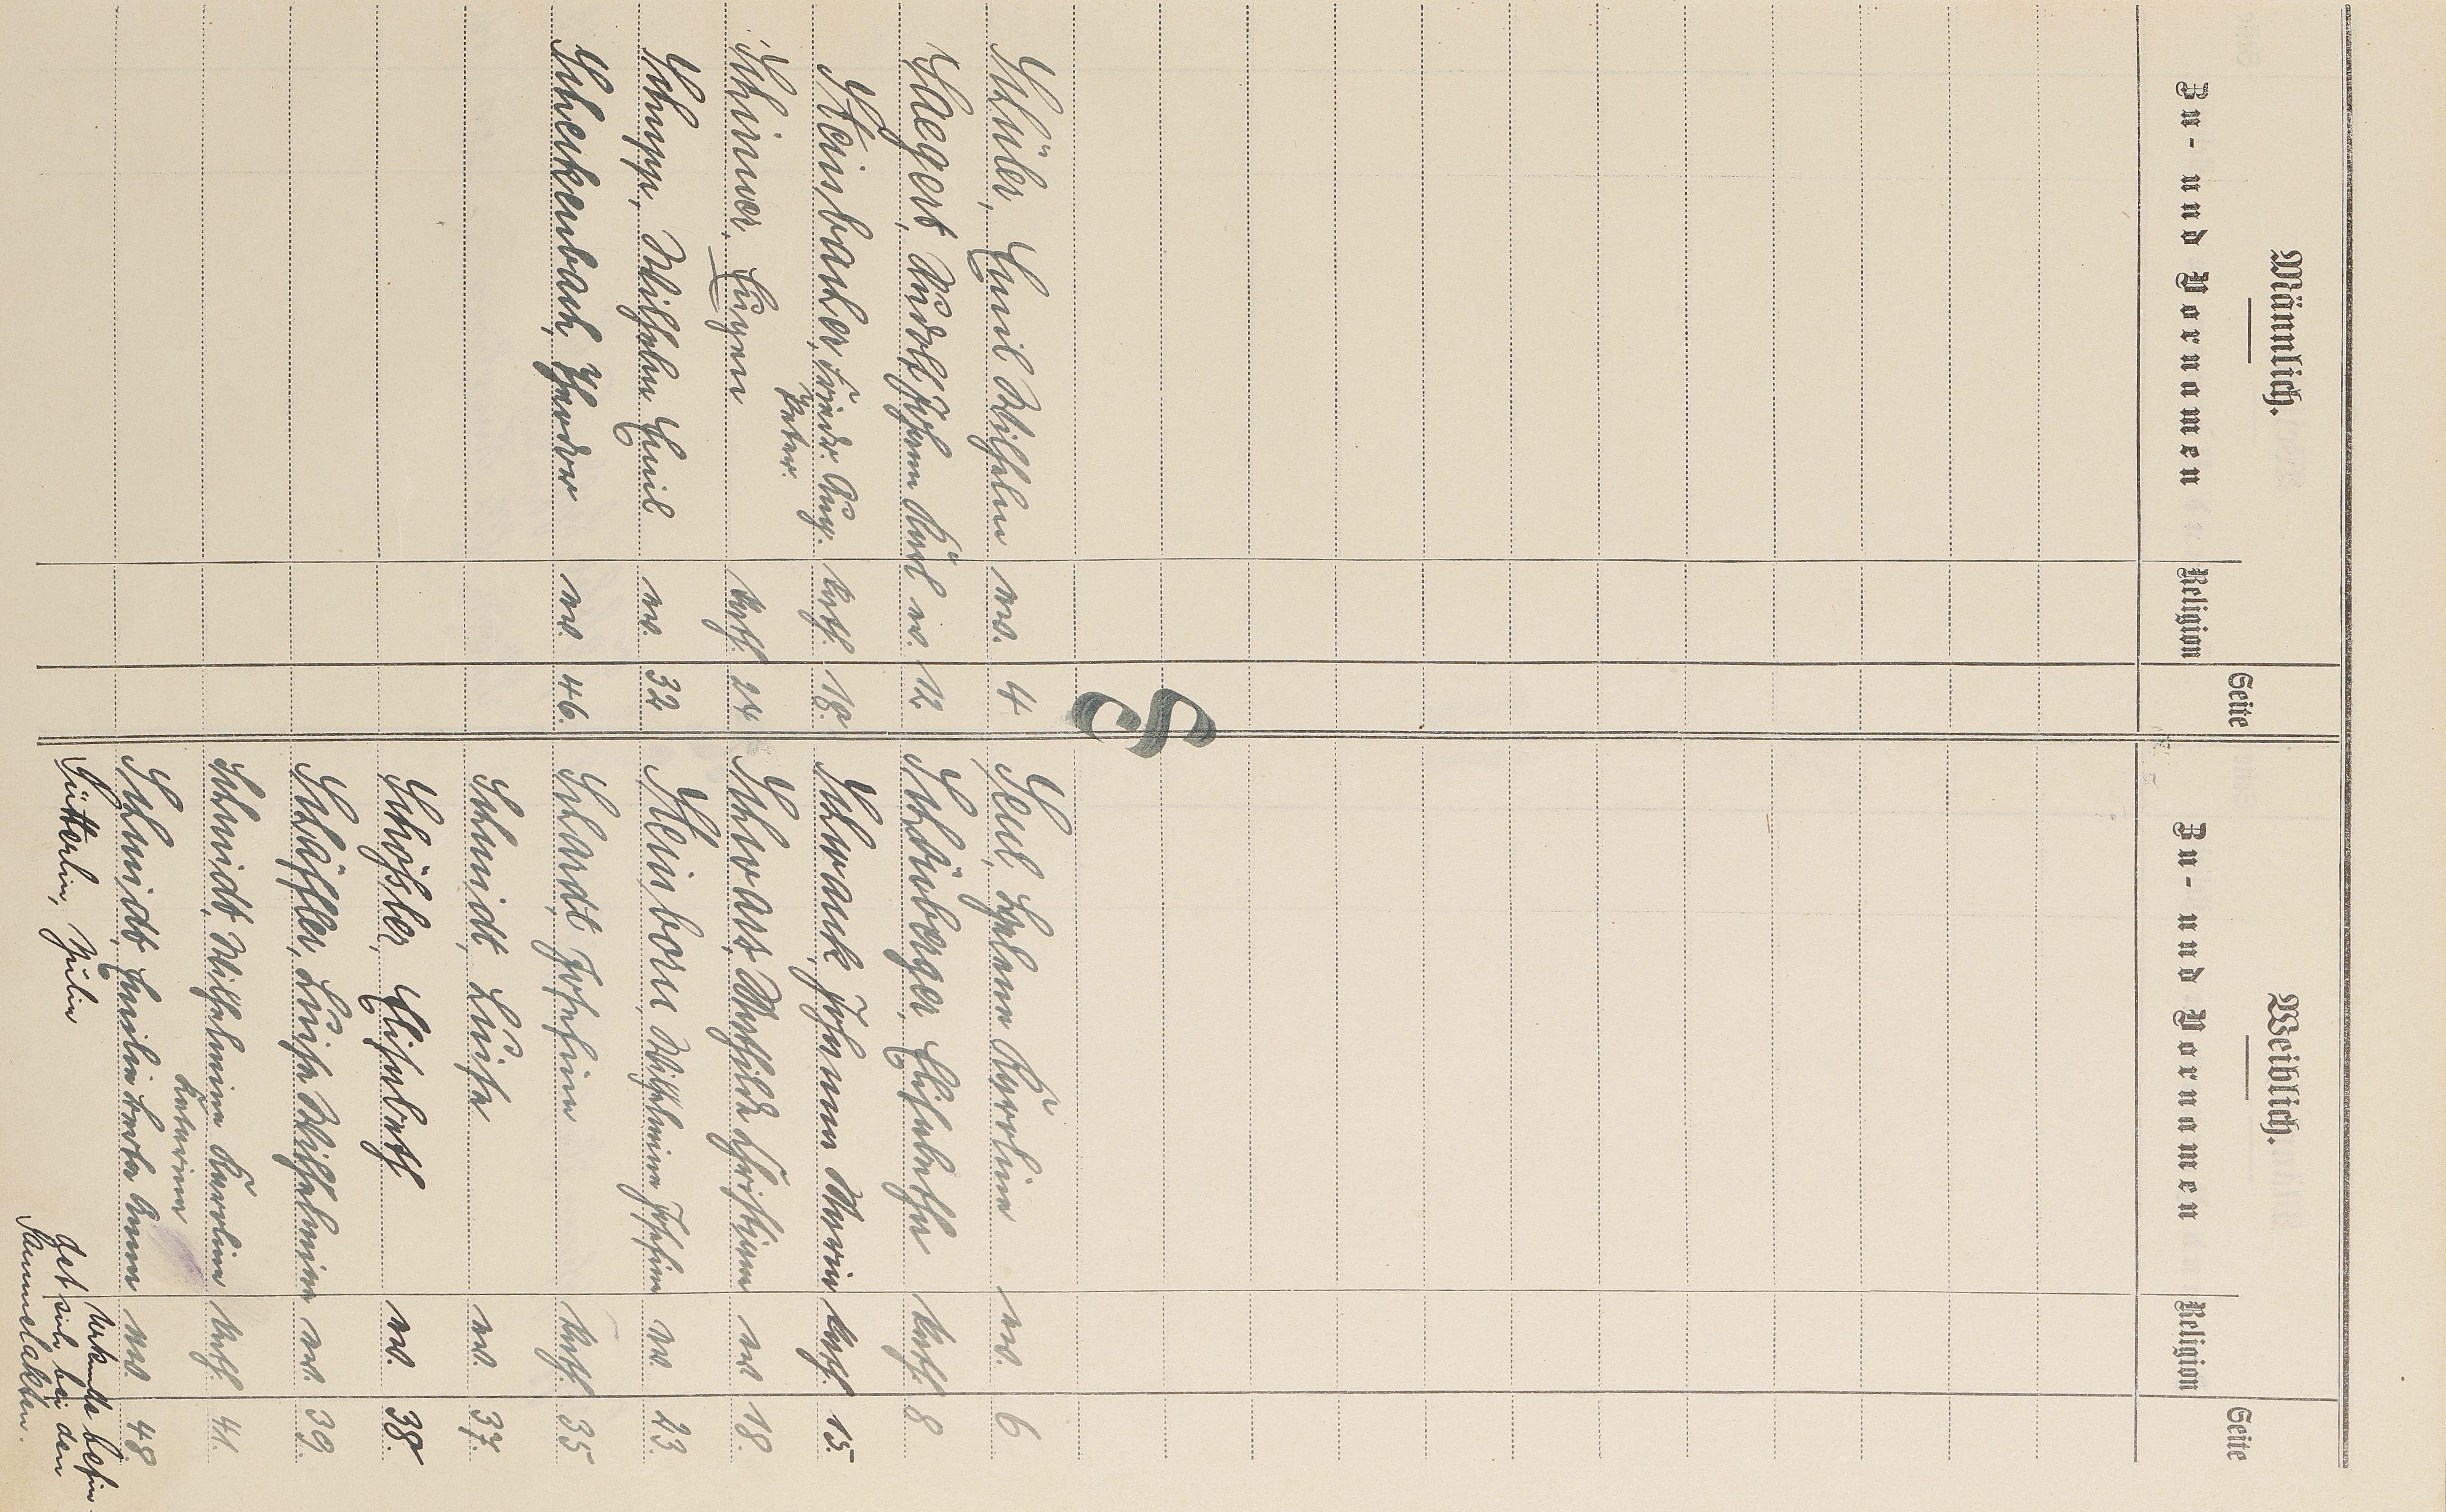 Männlich.
Zu- und Vornamen Religion Seite
S
Schüler, Emil Wilhelm ev. 4
Staegert, Rudolf Johann Karl ev. 12.
Steinbacher, Friedr. Aug. kath. 18.
Peter.
Schirmer, Eugen kath. 24
Schupp, Wilhelm Emil ev. 32
Scheckenbach, Theodor ev. 46.
Weiblich.
Zu- und Vornamen Religion Seite
Seul, Helena Karolina ev. 6
Elisabetha kath 8
Schwank, Johanna Maria kath 15.
Schwarz, Mathilde Christiana ev 18.
Steinborn, Wilhelmine Josefine ev. 23.
Schardt, Josefine kath. 35
Schmidt, Luise ev. 37.
Schößler, Elisabeth ev. 38.
Schäffler, Luise Wilhelmine ev. 39.
Schmidt, Wilhelmine Karoline kath 41.
Katarina
Schmidt, Emilie Berta Anna ev. 48.
Sütterlin, Julie
Urkunde befin-
det sich bei den
Sammelakten.